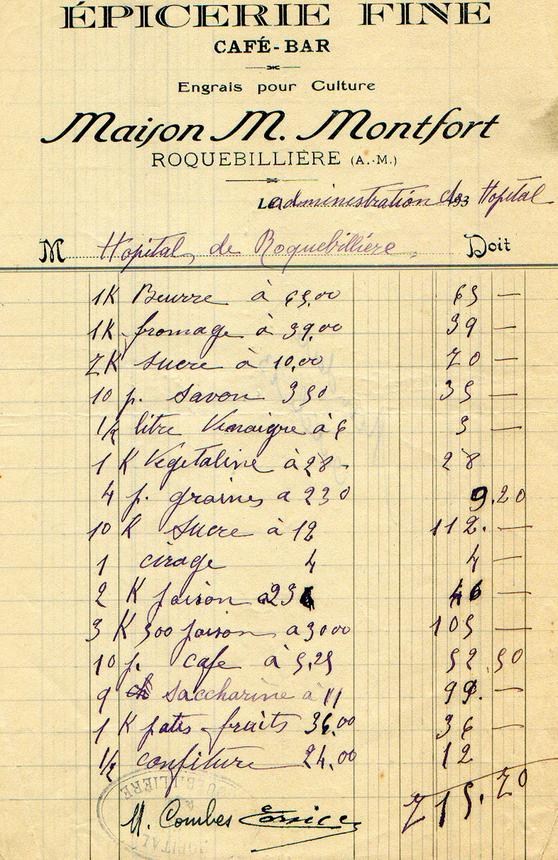 ÉPICERIE FINE
CAFÉ-BAR
Engrais pour Culture
Maison M. Montfort
ROQUEBILLIÈRE (A.-M.)
Le administration de Hopital 193
M Hopital de Roquebilliere Doit
1K Beurre à 65,00 65 —
1K fromage à 39,00 39 —
7K sucre à 10,00 70 —
10 p. savon 350 35 —
1/2 litre Vinaigre à 6 3 —
1 K Vegetaline à 28 28
4 p. graines a 230 9.20
10 K sucre à 12 112. —
1 cirage 4 4 —
2 K 23 46 —
3 K 500 a 3000 105 —
10 p. cafe à 5,25 52,50
9 saccharine à 11 99. —
1 K pates fruits 36,00 36 —
1/2 confiture 24,00 12
715.70
M. Combes
ROQUEBILLIERE